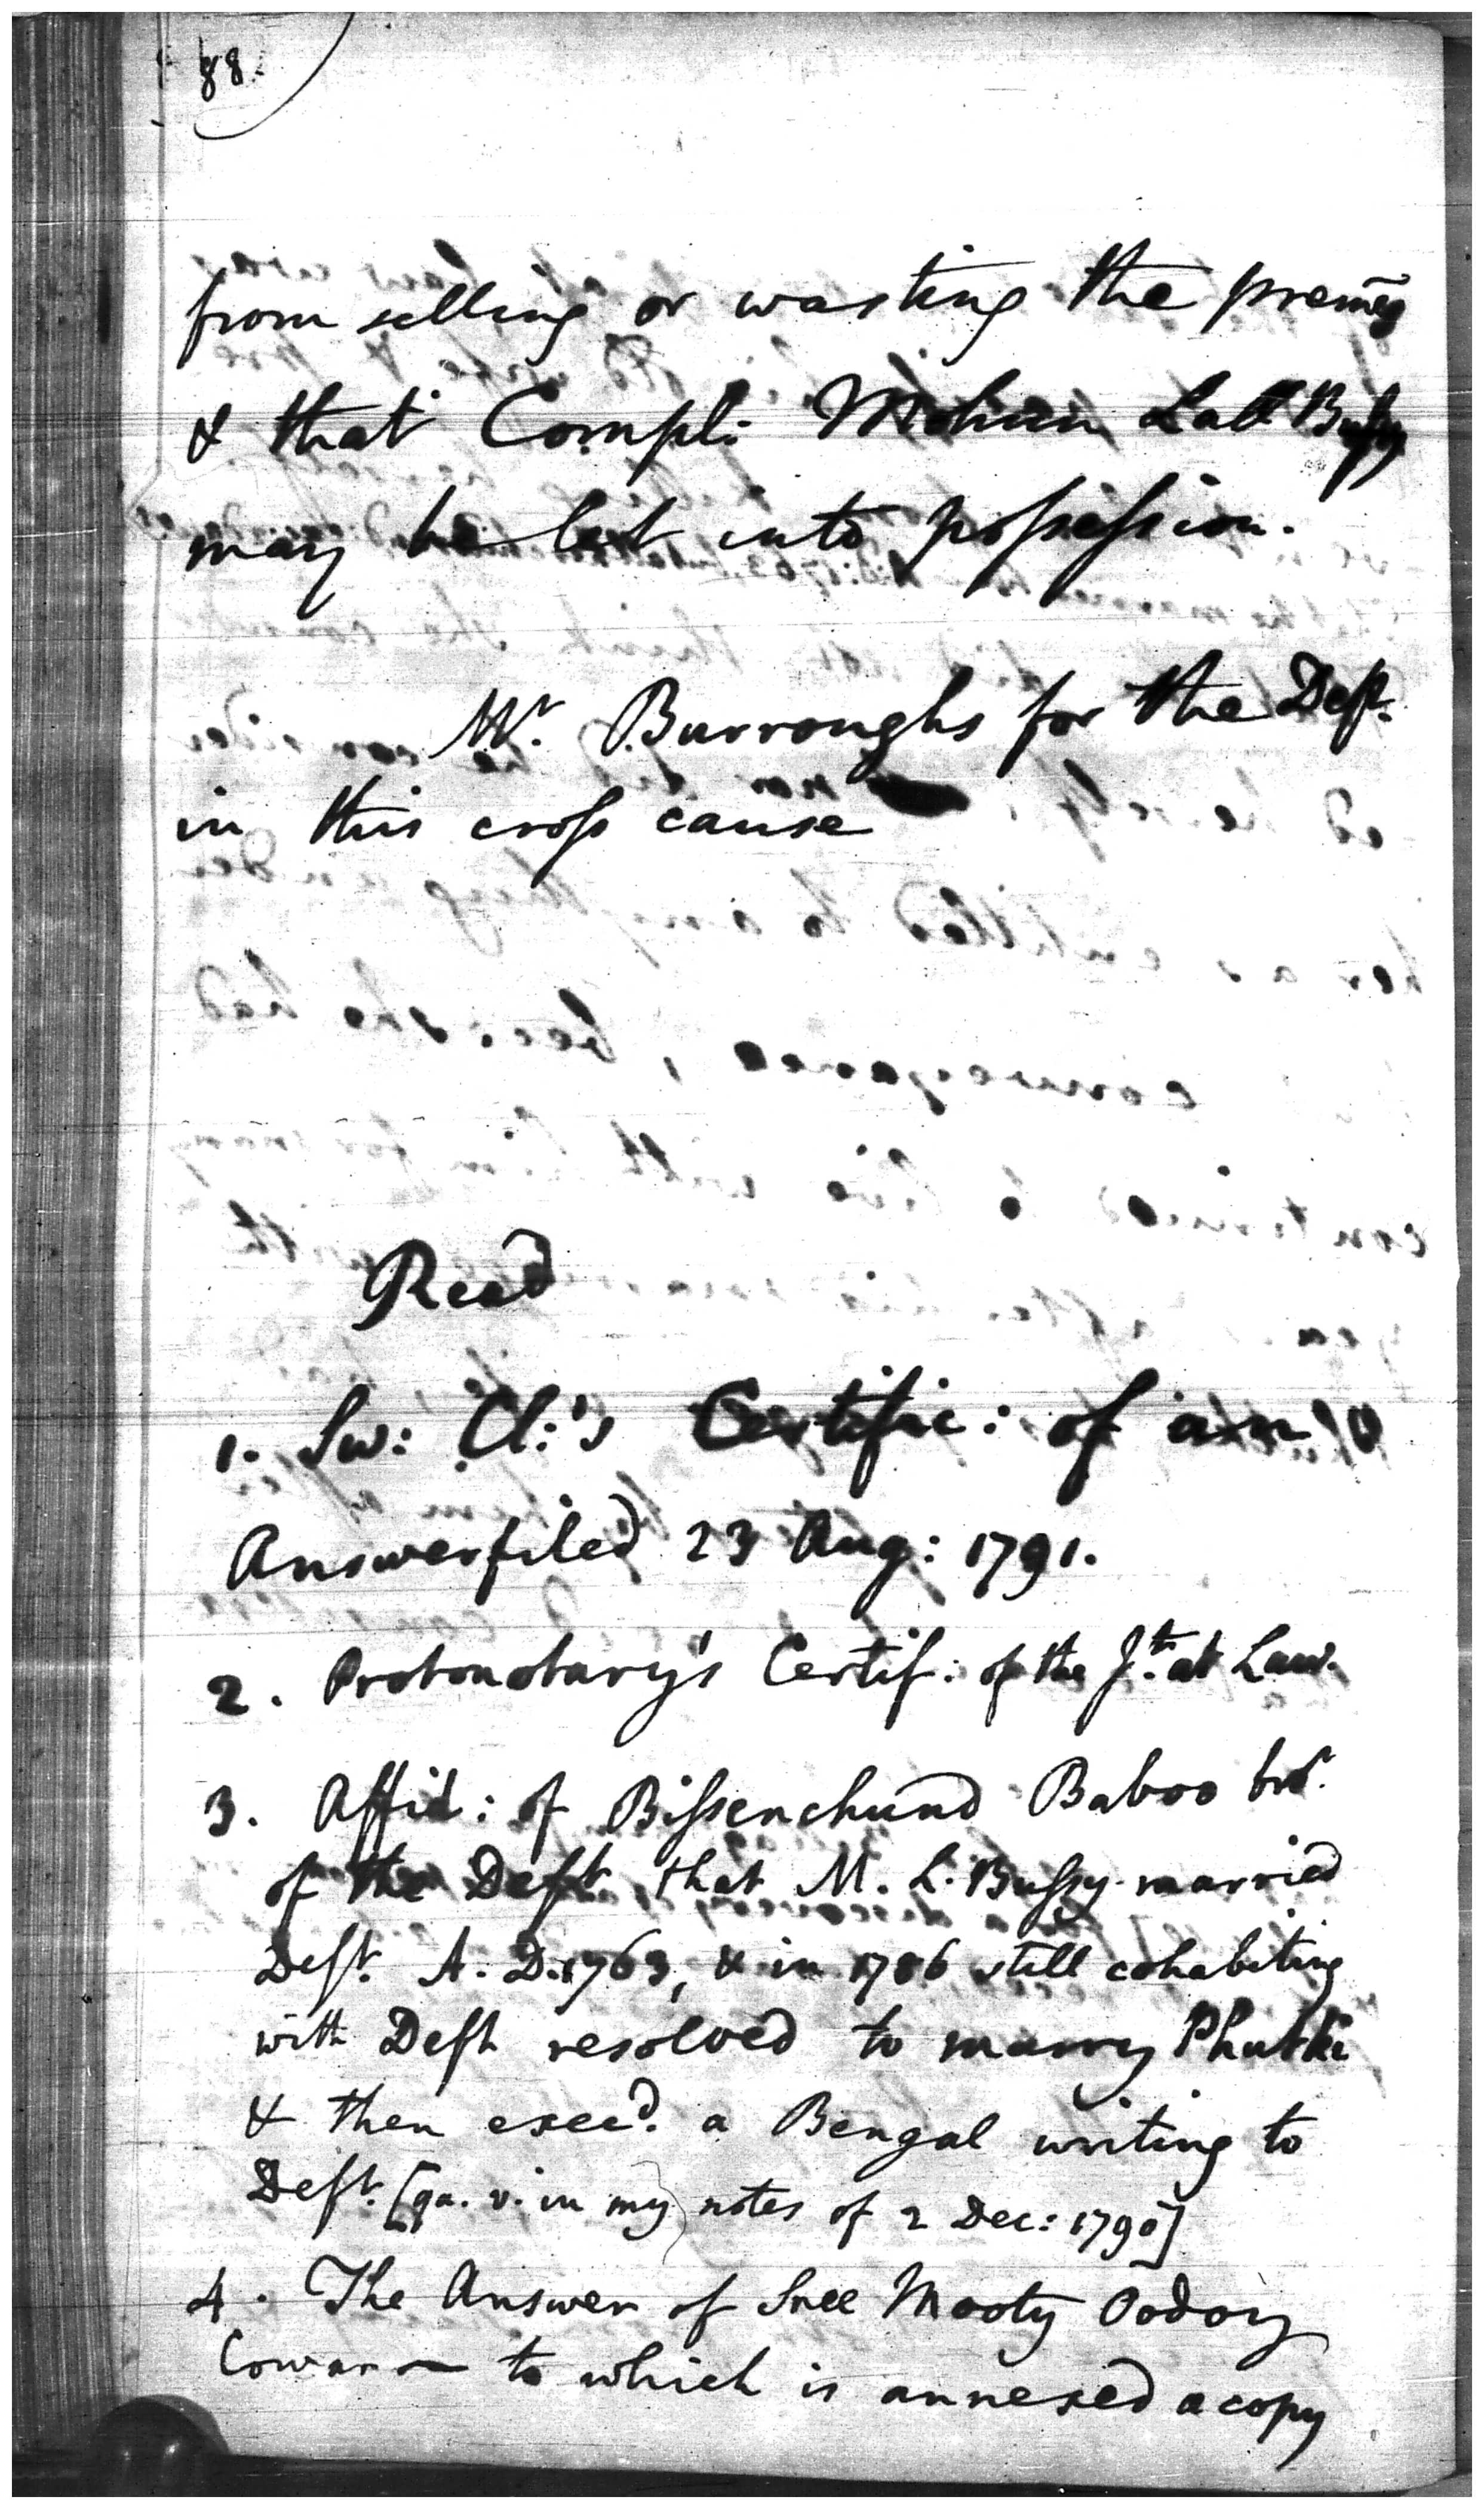 88.
from selling or wasting the premes
& that Compl: Mohun Lall Bussy
may be let into possession.
Mr. Burroughs for the Deft.
in this cross cause
Read
1. Sw: Cl:'s Certific: of an
Answer filed 23 Aug: 1791.
2. Protonotary's Certif: of the Jt. at Law.
3. Affid: of Bissenchund Baboo bror.
of the Deft that M. L. Bussy married
Deft. A. D. 1763, & in 1786 still cohabiting
with Deft resolved to marry Phutki
& then execd. a Bengal writing to
Deft. [qa. v. in my notes of 2 Dec: 1790]
4. The Answer of Sree Mooty Oodoy
Cowarr to which is annexed a copy